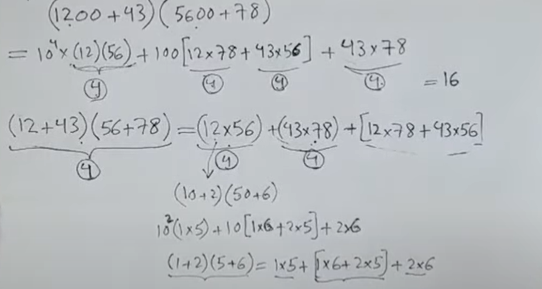 (1200+43)(5600+78)
= 10⁴×(12)(56) + 100[12×78 + 43×56] + 43×78
4 4 4 4 = 16
(12+43)(56+78) = (12×56) + (43×78) + [12×78 + 43×56]
4 4 4
(10+2)(50+6)
10²(1×5) + 10[1×6+2×5] + 2×6
(1+2)(5+6) = 1×5 + [1×6+2×5] + 2×6